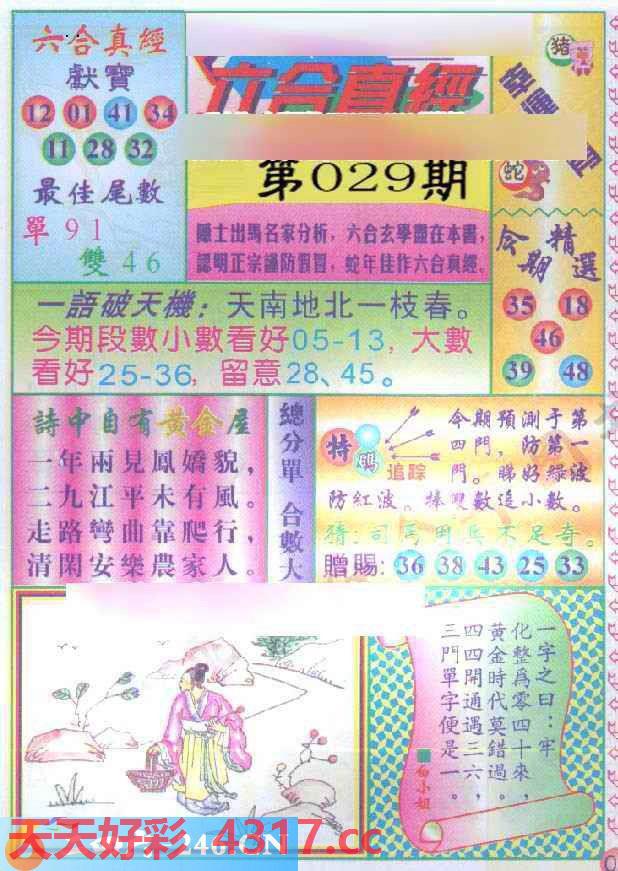 六合真經
獻寶
12 01 41 34
11 28 32
最佳尾數
單91
雙46
六合真經
第029期
隱士出馬名家分析，六合玄學盡在本書，
認明正宗謹防假冒，蛇年佳作六合真經。
豬
蛇
今期精選
35 18
46
39 48
一語破天機：天南地北一枝春。
今期段數小數看好05-13，大數
看好25-36，留意28、45。
詩中自有黃金屋
一年兩見鳳嬌貌，
二九江平未有風。
走路彎曲靠爬行，
清閑安樂農家人。
總分單 合數大
特碼
追踪
今期預測于第
四門，防第一
門。睇好綠波
防紅波。捧雙數追小數。
猜：司馬用兵不足奇。
贈賜：36 38 43 25 33
一字之曰：牢
化整爲零四十來，
黃金時代莫錯過。
四四開通遇三六，
三門單字便是一。
白小姐
天天好彩 4317.cc
246.CN